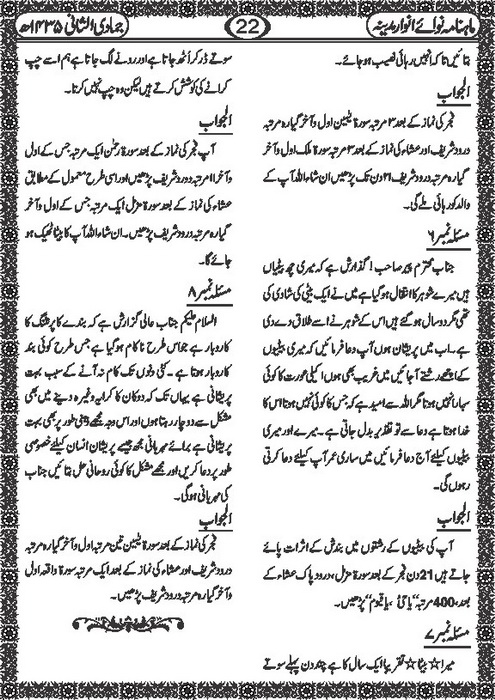 ماہنامہ نوائے انوار مدینہ
22
جمادی الثانی ۱۴۳۵ھ
بتائیں تاکہ انہیں رہائی نصیب ہو جائے۔
الجواب
فجر کی نماز کے بعد ۳ مرتبہ سورۃ یٰسین اول و آخر گیارہ مرتبہ
درود شریف اور عشاء کی نماز کے بعد ۳ مرتبہ سورۃ ملک اول و آخر
گیارہ مرتبہ درود شریف ۲۱ دن تک پڑھیں ان شاء اللہ آپ کے
والد کو رہائی ملے گی۔
مسئلہ نمبر ۶
جناب محترم پیر صاحب! گذارش ہے کہ میری چھ بیٹیاں
ہیں میرے شوہر کا انتقال ہو گیا ہے میں نے ایک بیٹی کی شادی کی
تھی مگر دو سال ہو گئے ہیں اس کے شوہر نے اسے طلاق دے دی
ہے۔ اب میں پریشان ہوں آپ دعا فرمائیں کہ میری بیٹیوں
کے اچھے رشتے آ جائیں میں غریب بھی ہوں اکیلی عورت کا کوئی
سہارا نہیں ہوتا مگر اللہ سے امید ہے کہ جس کا کوئی نہیں ہوتا اس کا
خدا ہوتا ہے دعا سے تو تقدیر بدل جاتی ہے۔ میرے اور میری
بیٹیوں کیلئے آج دعا فرمائیں میں ساری عمر آپ کیلئے دعا کرتی
رہوں گی۔
الجواب
آپ کی بیٹیوں کے رشتوں میں بندش کے اثرات پائے
جاتے ہیں 21 دن فجر کے بعد سورۃ مزمل، درود پاک عشاء کے
بعد، 400 مرتبہ ”یا حیُّ، یا قیوم“ پڑھیں۔
مسئلہ نمبر ۷
میرا ☆ بیٹا ☆ تقریباً ایک سال کا ہے چند دن پہلے سوتے
سوتے ڈر کر اٹھ جاتا ہے اور رونے لگ جاتا ہے ہم اسے چپ
کرانے کی کوشش کرتے ہیں لیکن وہ چپ نہیں کرتا۔
الجواب
آپ فجر کی نماز کے بعد سورۃ رحمٰن ایک مرتبہ جس کے اول
و آخر ۱۱ مرتبہ درود شریف پڑھیں اور اسی طرح معمول کے مطابق
عشاء کی نماز کے بعد سورۃ مزمل ایک مرتبہ جس کے اول و آخر
گیارہ مرتبہ درود شریف پڑھیں۔ ان شاء اللہ آپ کا بیٹا ٹھیک ہو
جائے گا۔
مسئلہ نمبر ۸
السلام علیکم جناب عالی گزارش ہے کہ بندے کا پرنٹنگ کا
کاروبار ہے جو اس طرح ناکام ہو گیا ہے جس طرح کوئی بند
کاروبار ہوتا ہے۔ کئی دنوں تک کام نہ آنے کے سبب بہت
پریشانی ہے یہاں تک کہ دوکان کا کرایہ وغیرہ دینے میں بھی
مشکل سے دو چار رہتا ہوں اور اس وجہ سے ذہنی طور پر بھی بہت
پریشانی ہے برائے مہربانی مجھ جیسے پریشان انسان کیلئے خصوصی
طور پر دعا کریں اور مجھے مشکل کا کوئی روحانی عمل بتائیں جناب
کی مہربانی ہو گی۔
الجواب
فجر کی نماز کے بعد سورۃ یٰسین تین مرتبہ اول و آخر گیارہ مرتبہ
درود شریف اور عشاء کی نماز کے بعد ایک مرتبہ سورۃ واقعہ اول
و آخر گیارہ مرتبہ درود شریف پڑھیں۔